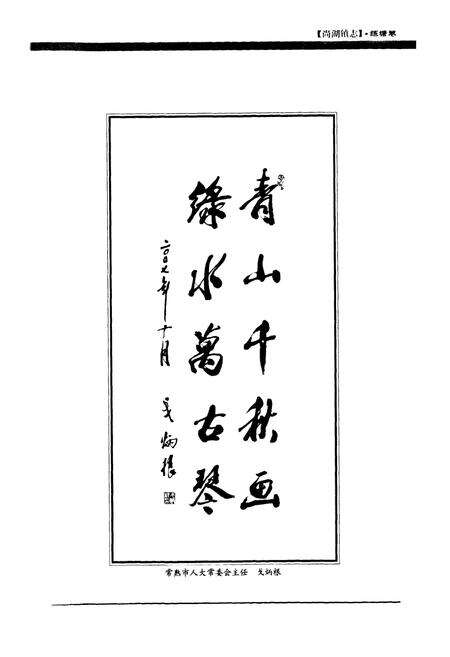 【尚湖镇志】·练塘卷
青山千秋画
绿水萬古琴
二〇〇七年十月
戈炳根
常熟市人大常委会主任 戈炳根